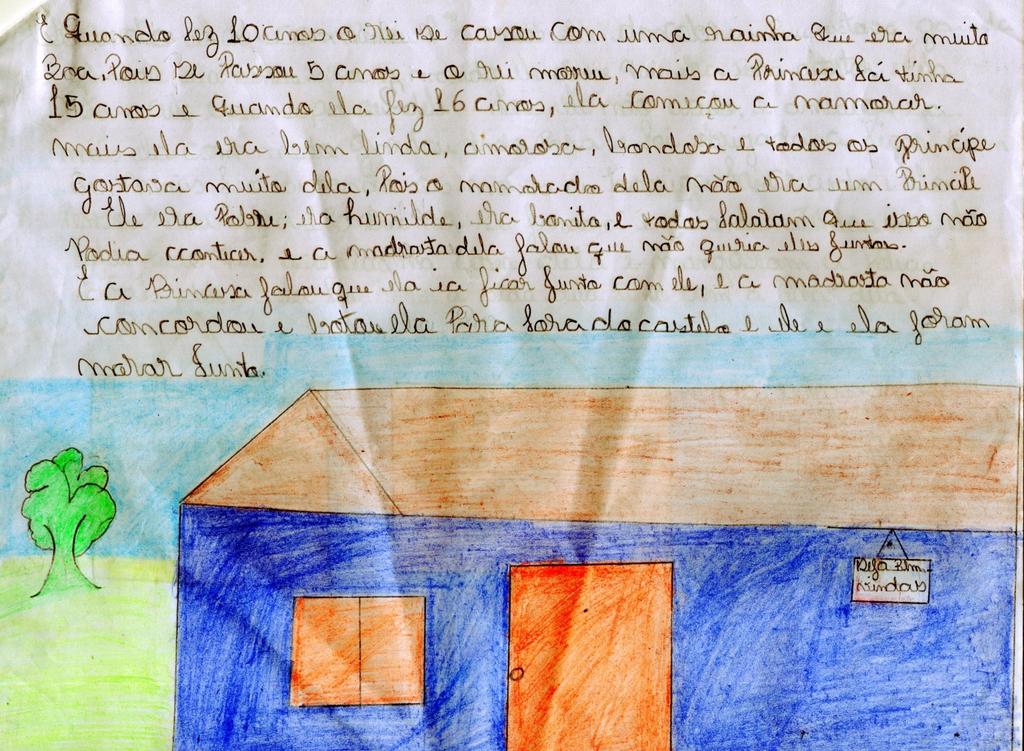 E Quando fez 10 anos o rei se casou com uma rainha que era muito
Boa, Pois se Passou 5 anos e o rei morreu, mais a Princesa Já tinha
15 anos e Quando ela fez 16 anos, ela começou a namorar.
mais ela era bem linda, amorosa, bondosa e todos os príncipe
gostava muito dela, Pois o namorado dela não era um Principe
Ele era Pobre; era humilde, era bonito, e todos falaram que isso não
Podia acontecer, e a madrasta dela falou que não queria eles Juntos.
E a Princesa falou que ela ia ficar Junto com ele, e a madrasta não
concordou e botou ela Para fora do castelo e ele e ela foram
morar Junto.
Seja Bem-
vindos